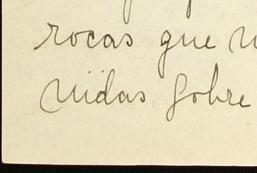 rocas que
nidas sobre